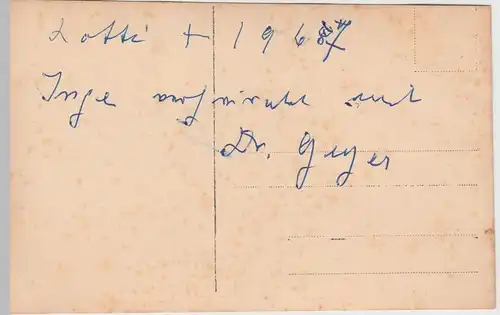 Lotti + 1967
Inge verheiratet mit
Dr. Geyer